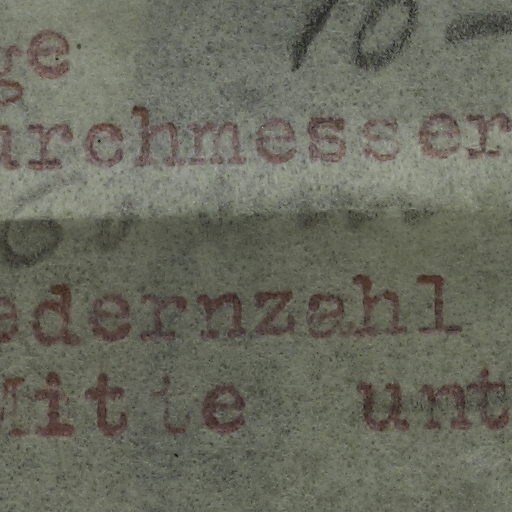 ge 10-
urchmesser
edernzahl
Mitte unt